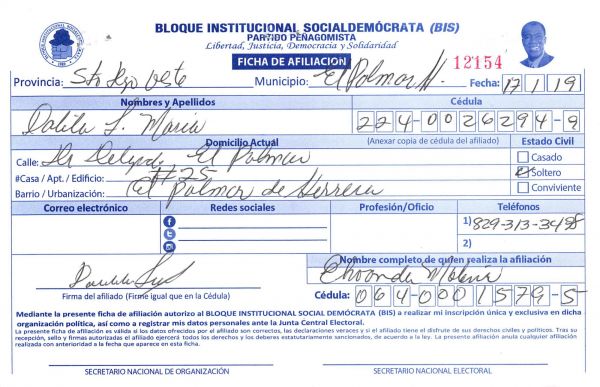 BLOQUE INSTITUCIONAL SOCIALDEMÓCRATA (BIS)
PARTIDO PEÑAGOMISTA
Libertad, Justicia, Democracia y Solidaridad
FICHA DE AFILIACIÓN
12154
Provincia: Sto Dgo Oeste Municipio: El Palmar H. Fecha: 17/1/19
Nombres y Apellidos Cédula
Dalila L. Maria 224-0026294-9
Domicilio Actual (Anexar copia de cédula del afiliado) Estado Civil
Calle: El Palmar Casado
#Casa / Apt. / Edificio: #25 Soltero
Barrio / Urbanización: El Palmar de Herrera Conviviente
Correo electrónico Redes sociales Profesión/Oficio Teléfonos
1) 829-313-3458
2)
Nombre completo de quien realiza la afiliación
Molina
Firma del afiliado (Firme igual que en la Cédula) Cédula: 064-0001579-5
Mediante la presente ficha de afiliación autorizo al BLOQUE INSTITUCIONAL SOCIAL DEMÓCRATA (BIS) a realizar mi inscripción única y exclusiva en dicha
organización política, así como a registrar mis datos personales ante la Junta Central Electoral.
La presente ficha de afiliación es válida si los datos ofrecidos por el afiliado son correctos, las declaraciones veraces y si el afiliado tiene el disfrute de sus derechos civiles y políticos. Tras su
recepción, sello y firmas autorizadas el afiliado ejercerá todos los derechos y los deberes estatutariamente sancionados, de acuerdo a la ley. La presente afiliación anula cualquier afiliación
realizada con anterioridad a la fecha que aparece en esta ficha.
SECRETARIO NACIONAL DE ORGANIZACIÓN SECRETARIO NACIONAL ELECTORAL